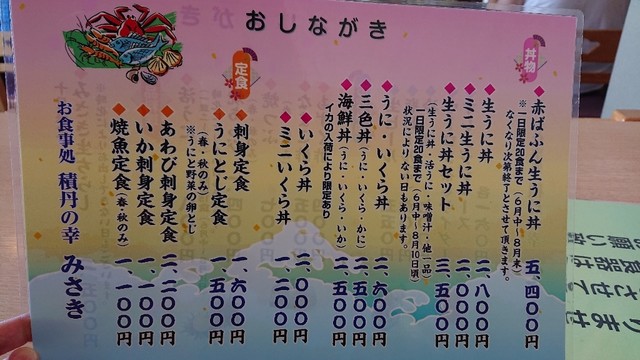 おしながき
丼物
◆赤ばふん生うに丼 五、四〇〇円
※一日限定20食まで(6月中〜8月末)
なくなり次第終了とさせて頂きます。
◆生うに丼 二、八〇〇円
◆ミニ生うに丼 二、〇〇〇円
◆生うに丼セット 三、五〇〇円
(生うに丼・活うに・味噌汁・他一品)
一日限定20食まで(6月中〜8月10日頃)
状況によりない日もあります。
◆うに・いくら丼 二、六〇〇円
◆三色丼(うに・いくら・かに) 二、五〇〇円
◆海鮮丼(うに・いくら・いか) 二、五〇〇円
イカの入荷により限定あり
◆いくら丼 二、〇〇〇円
◆ミニいくら丼 一、二〇〇円
定食
◆刺身定食 一、六〇〇円
◆うにとじ定食 一、五〇〇円
(春・秋のみ)
※うにと野菜の卵とじ
◆あわび刺身定食 二、二〇〇円
◆いか刺身定食 一、一〇〇円
◆焼魚定食(春・秋のみ) 一、一〇〇円
お食事処 積丹の幸 みさき